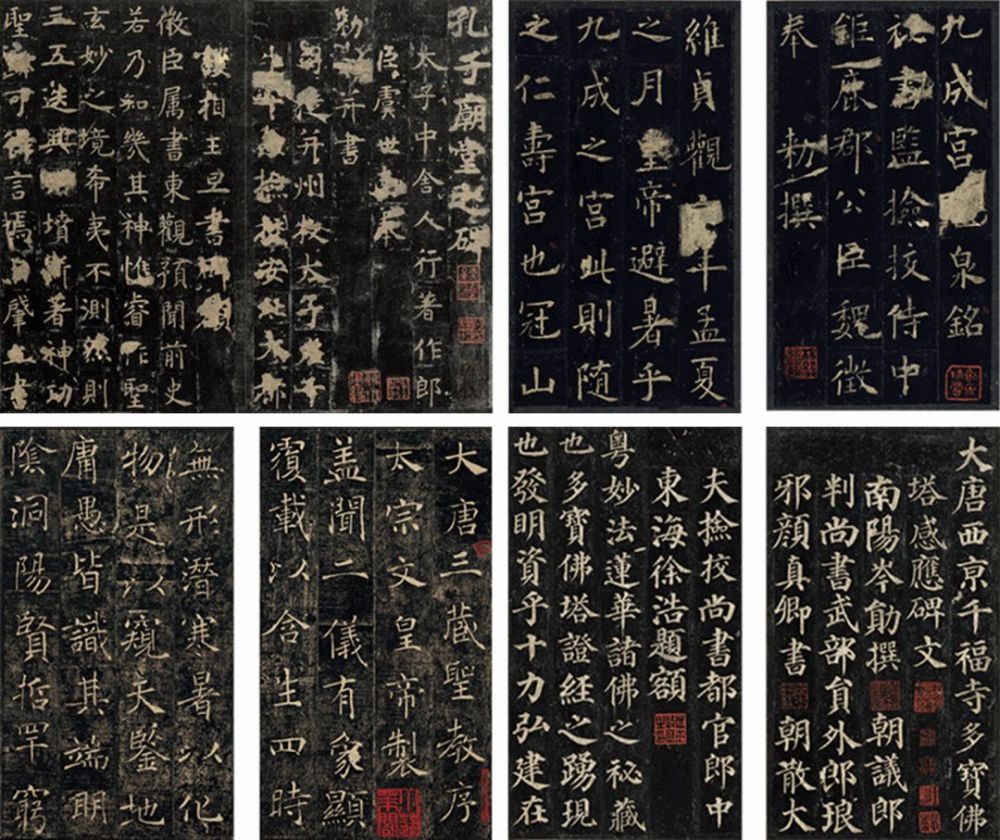 九成宮泉銘
秘書監撿挍侍中
鉅鹿郡公臣魏徵
奉 勑撰
維貞觀年孟夏
之月皇帝避暑乎
九成之宮此則随
之仁壽宮也冠山
孔子廟堂之碑
太子中舍人行著作郎
臣虞世南奉
勑并書
司徒并州牧太子左千
牛率兼撿挍安北大都
護相王旦書碑額
微臣属書東觀預聞前史
若乃知幾其神惟睿作聖
玄妙之境希夷不測然則
三五迭興墳斯著神功
聖跡可得言焉自肇立書
大唐西京千福寺多寶佛
塔感應碑文
南陽岑勛撰 朝議郎
判尚書武部員外郎琅
邪顏真卿書 朝散大
夫撿校尚書都官郎中
東海徐浩題額
粵妙法蓮華諸佛之秘藏
也多寶佛塔證經之踴現
也發明資乎十力弘建在
大唐三藏聖教序
太宗文皇帝製
盖聞二儀有象顯
覆載以含生四時
無形潛寒暑以化
物是以窺天鑒地
庸愚皆識其端明
陰洞陽賢哲罕窮